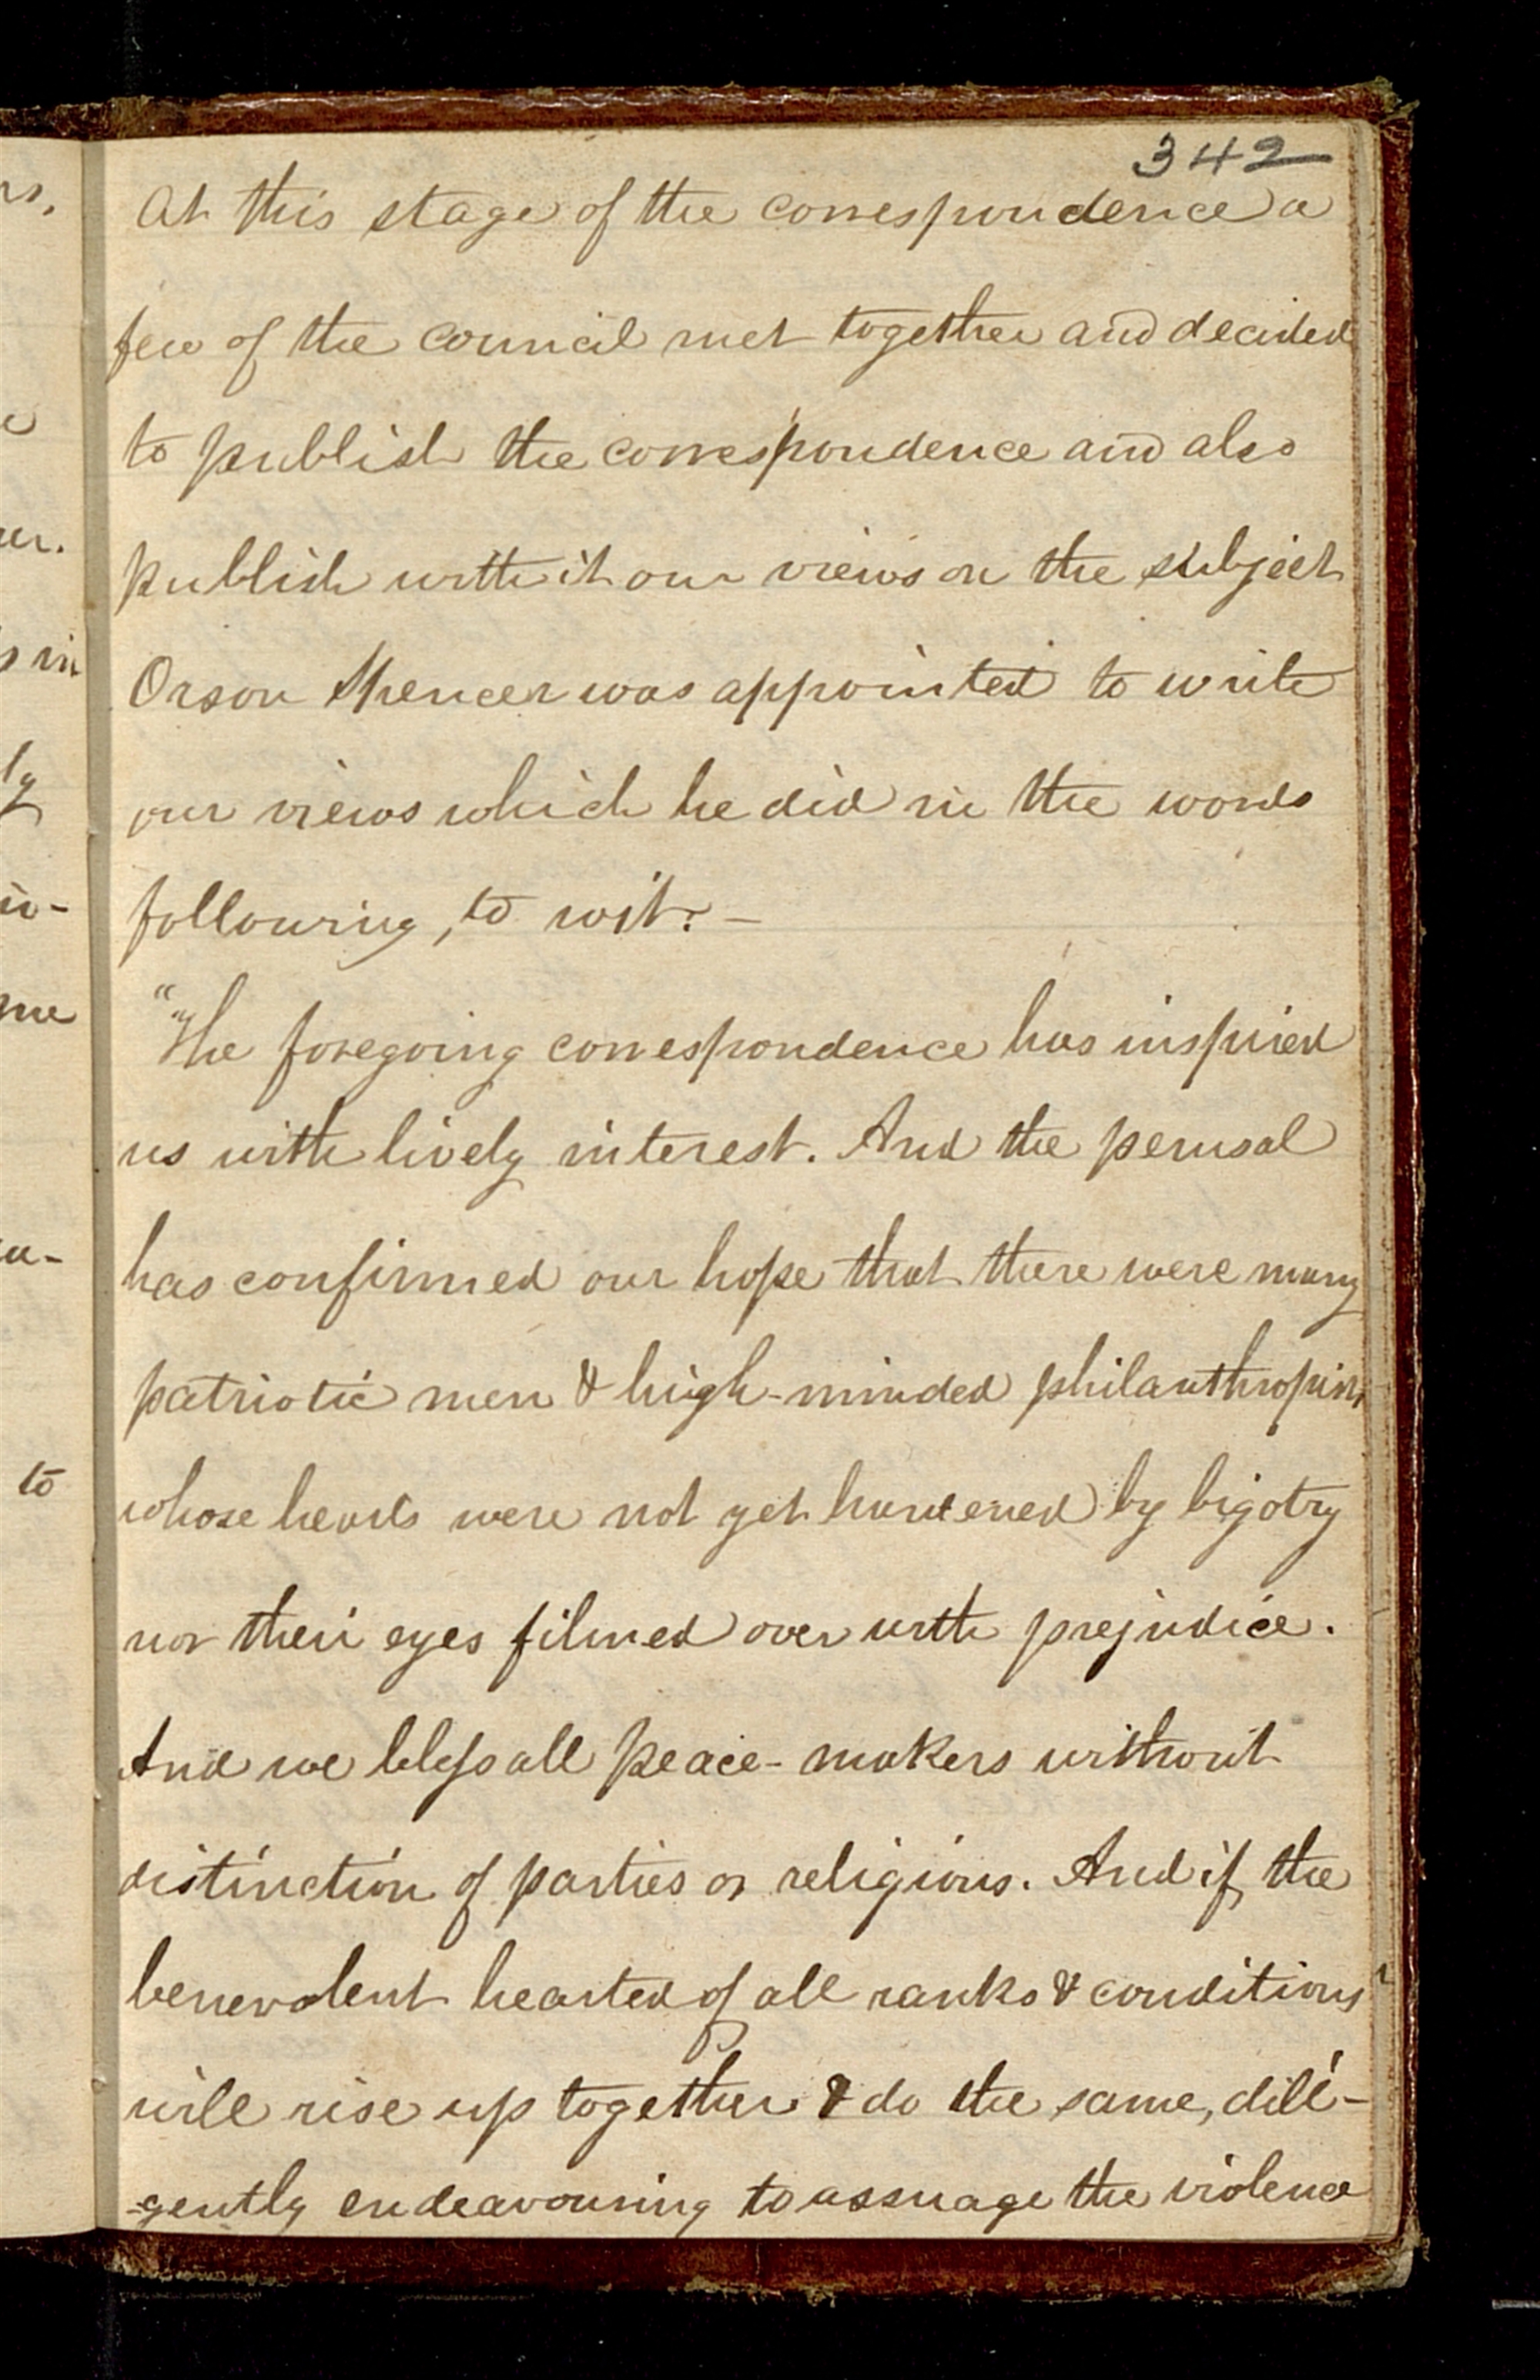 342
At this stage of the correspondence a
few of the council met together and decided
to publish the correspondence and also
publish with it our views on the subject
Orson Spencer was appointed to write
our views which he did in the words
following, to wit:—
"The foregoing correspondence has inspired
us with lively interest. And the perusal
has confirmed our hope that there were many
patriotic men & high-minded philanthropists
whose hearts were not yet hardened by bigotry
nor their eyes filmed over with prejudice.
And we bless all peace-makers without
distinction of parties or religions. And if the
benevolent hearted of all ranks & conditions
will rise up together & do the same, dili-
-gently endeavouring to assuage the violence